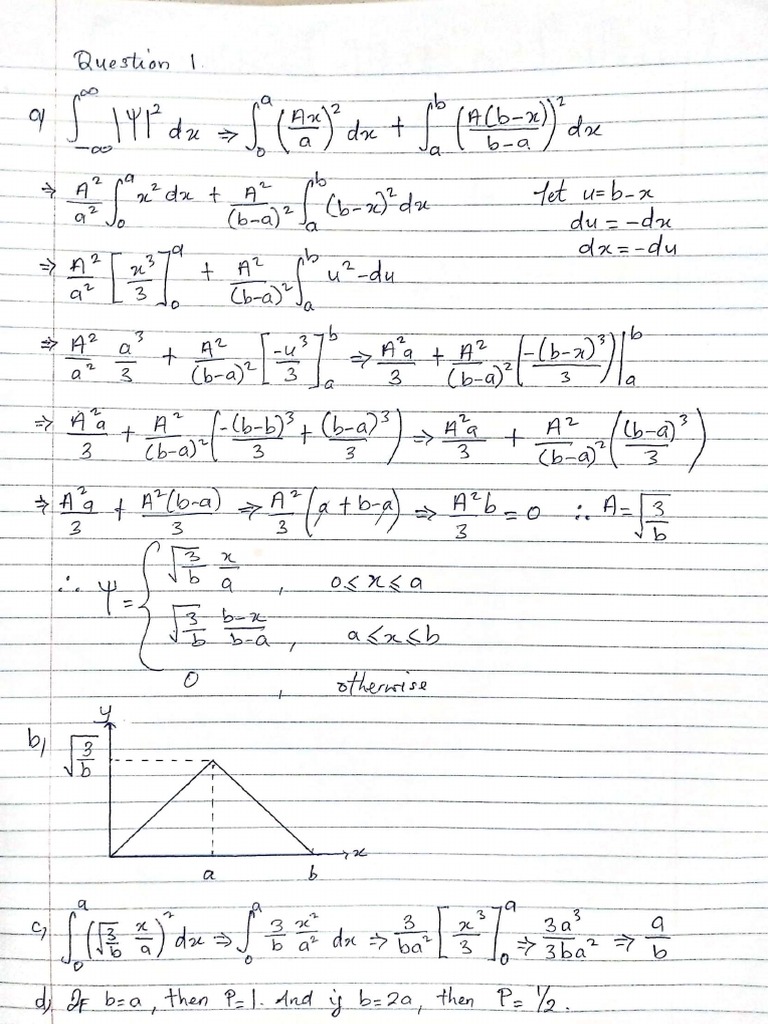 Question 1.
a) ∫_{-∞}^{∞} |Ψ|² dx ⇒ ∫_0^a (Ax/a)² dx + ∫_a^b (A(b-x)/(b-a))² dx
⇒ A²/a² ∫_0^a x² dx + A²/(b-a)² ∫_a^b (b-x)² dx let u = b-x
du = -dx
dx = -du
⇒ A²/a² [x³/3]_0^a + A²/(b-a)² ∫_a^b u² -du
⇒ A²/a² a³/3 + A²/(b-a)² [-u³/3]_a^b ⇒ A²a/3 + A²/(b-a)² (-(b-x)³/3)|_a^b
⇒ A²a/3 + A²/(b-a)² (-(b-b)³/3 + (b-a)³/3) ⇒ A²a/3 + A²/(b-a)² ((b-a)³/3)
⇒ A²a/3 + A²(b-a)/3 ⇒ A²/3 (a + b - a) ⇒ A²b/3 = 0 ∴ A = √(3/b)
∴ Ψ = { √(3/b) x/a , 0 ≤ x ≤ a
√(3/b) (b-x)/(b-a) , a ≤ x ≤ b
0 , otherwise
b) y
√(3/b)
x
a b
c) ∫_0^a (√(3/b) x/a)² dx ⇒ ∫_0^a 3/b x²/a² dx ⇒ 3/(ba²) [x³/3]_0^a ⇒ 3a³/(3ba²) ⇒ a/b
d) If b=a, then P=1. And if b=2a, then P=1/2.